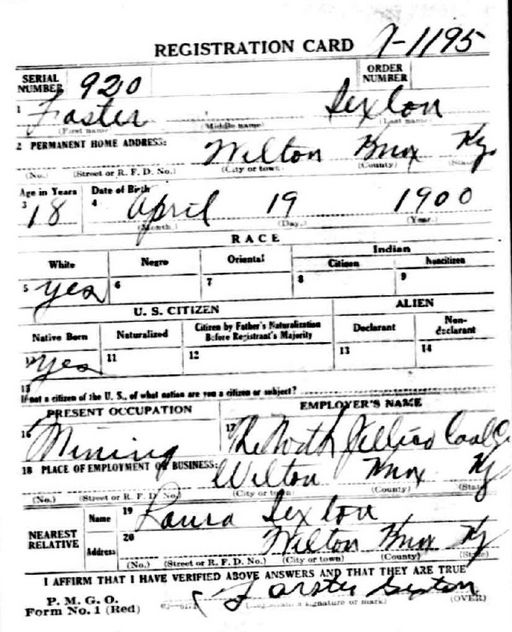 REGISTRATION CARD 7-1195
SERIAL NUMBER 920 ORDER NUMBER
1 Foster Sexton
(First name) (Middle name) (Last name)
2 PERMANENT HOME ADDRESS:
Wilton Knox Ky
(No.) (Street or R. F. D. No.) (City or town) (County) (State)
Age in Years Date of Birth
3 18 4 April 19 1900
(Month.) (Day.) (Year.)
RACE
White Negro Oriental Indian
Citizen Noncitizen
5 yes 6 7 8 9
U. S. CITIZEN ALIEN
Native Born Naturalized Citizen by Father's Naturalization Before Registrant's Majority Declarant Non-declarant
10 yes 11 12 13 14
15
If not a citizen of the U. S., of what nation are you a citizen or subject?
PRESENT OCCUPATION EMPLOYER'S NAME
16 Mining 17 The North Jellico Coal Co
18 PLACE OF EMPLOYMENT OR BUSINESS:
Wilton Knox Ky
(No.) (Street or R. F. D. No.) (City or town) (County) (State)
NEAREST RELATIVE Name 19 Laura Sexton
Address 20 Wilton Knox Ky
(No.) (Street or R. F. D. No.) (City or town) (County) (State)
I AFFIRM THAT I HAVE VERIFIED ABOVE ANSWERS AND THAT THEY ARE TRUE
P. M. G. O.
Form No. 1 (Red) Farster Sexton
(Registrant's signature or mark) (OVER)